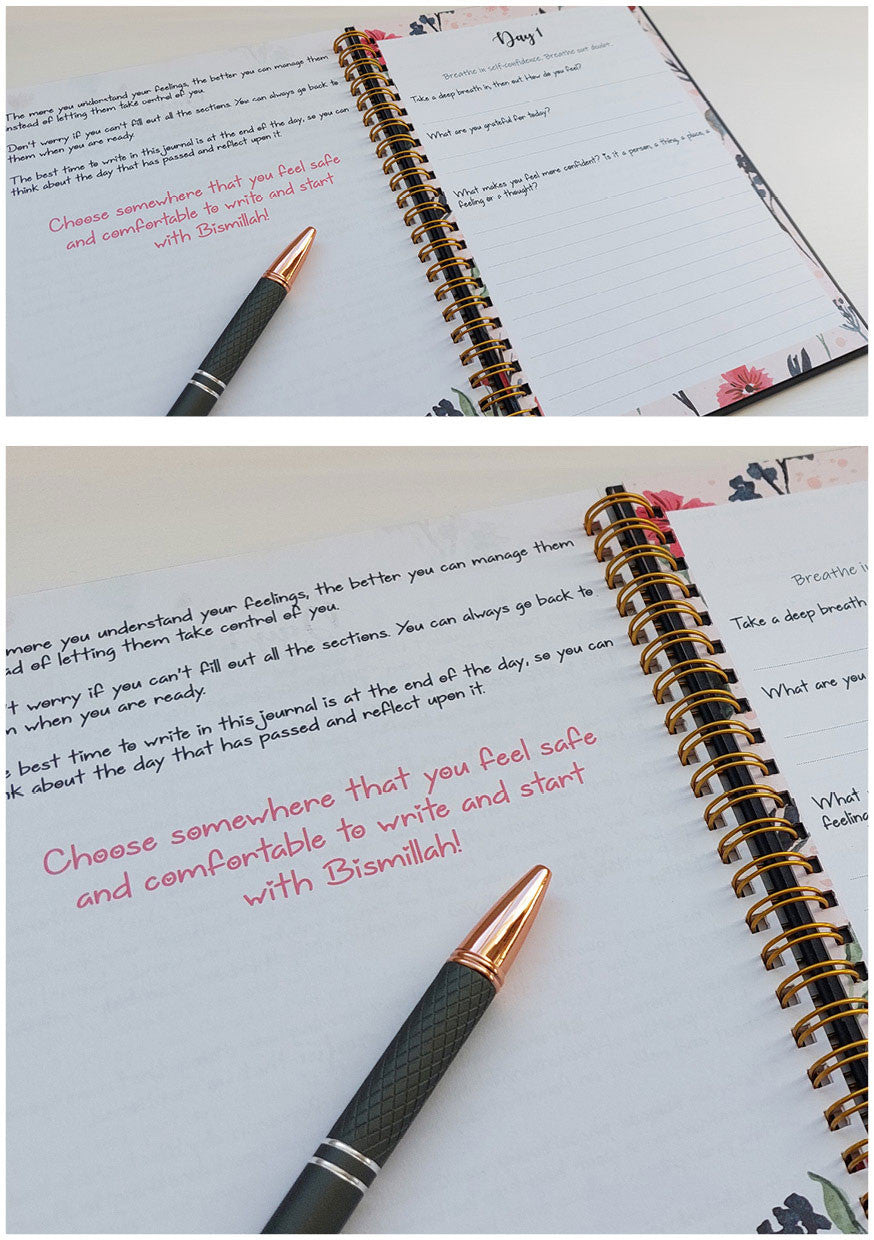 The more you understand your feelings, the better you can manage them
instead of letting them take control of you.
Don't worry if you can't fill out all the sections. You can always go back to
them when you are ready.
The best time to write in this journal is at the end of the day, so you can
think about the day that has passed and reflect upon it.
Choose somewhere that you feel safe
and comfortable to write and start
with Bismillah!
Day 1
Breathe in self-confidence. Breathe out doubt.
Take a deep breath in, then out. How do you feel?
What are you grateful for today?
What makes you feel more confident? Is it a person, a thing, a place, a
feeling or a thought?
more you understand your feelings, the better you can manage them
ad of letting them take control of you.
't worry if you can't fill out all the sections. You can always go back to
n when you are ready.
best time to write in this journal is at the end of the day, so you can
nk about the day that has passed and reflect upon it.
Choose somewhere that you feel safe
and comfortable to write and start
with Bismillah!
Breathe i
Take a deep breath
What are you
What
feeling